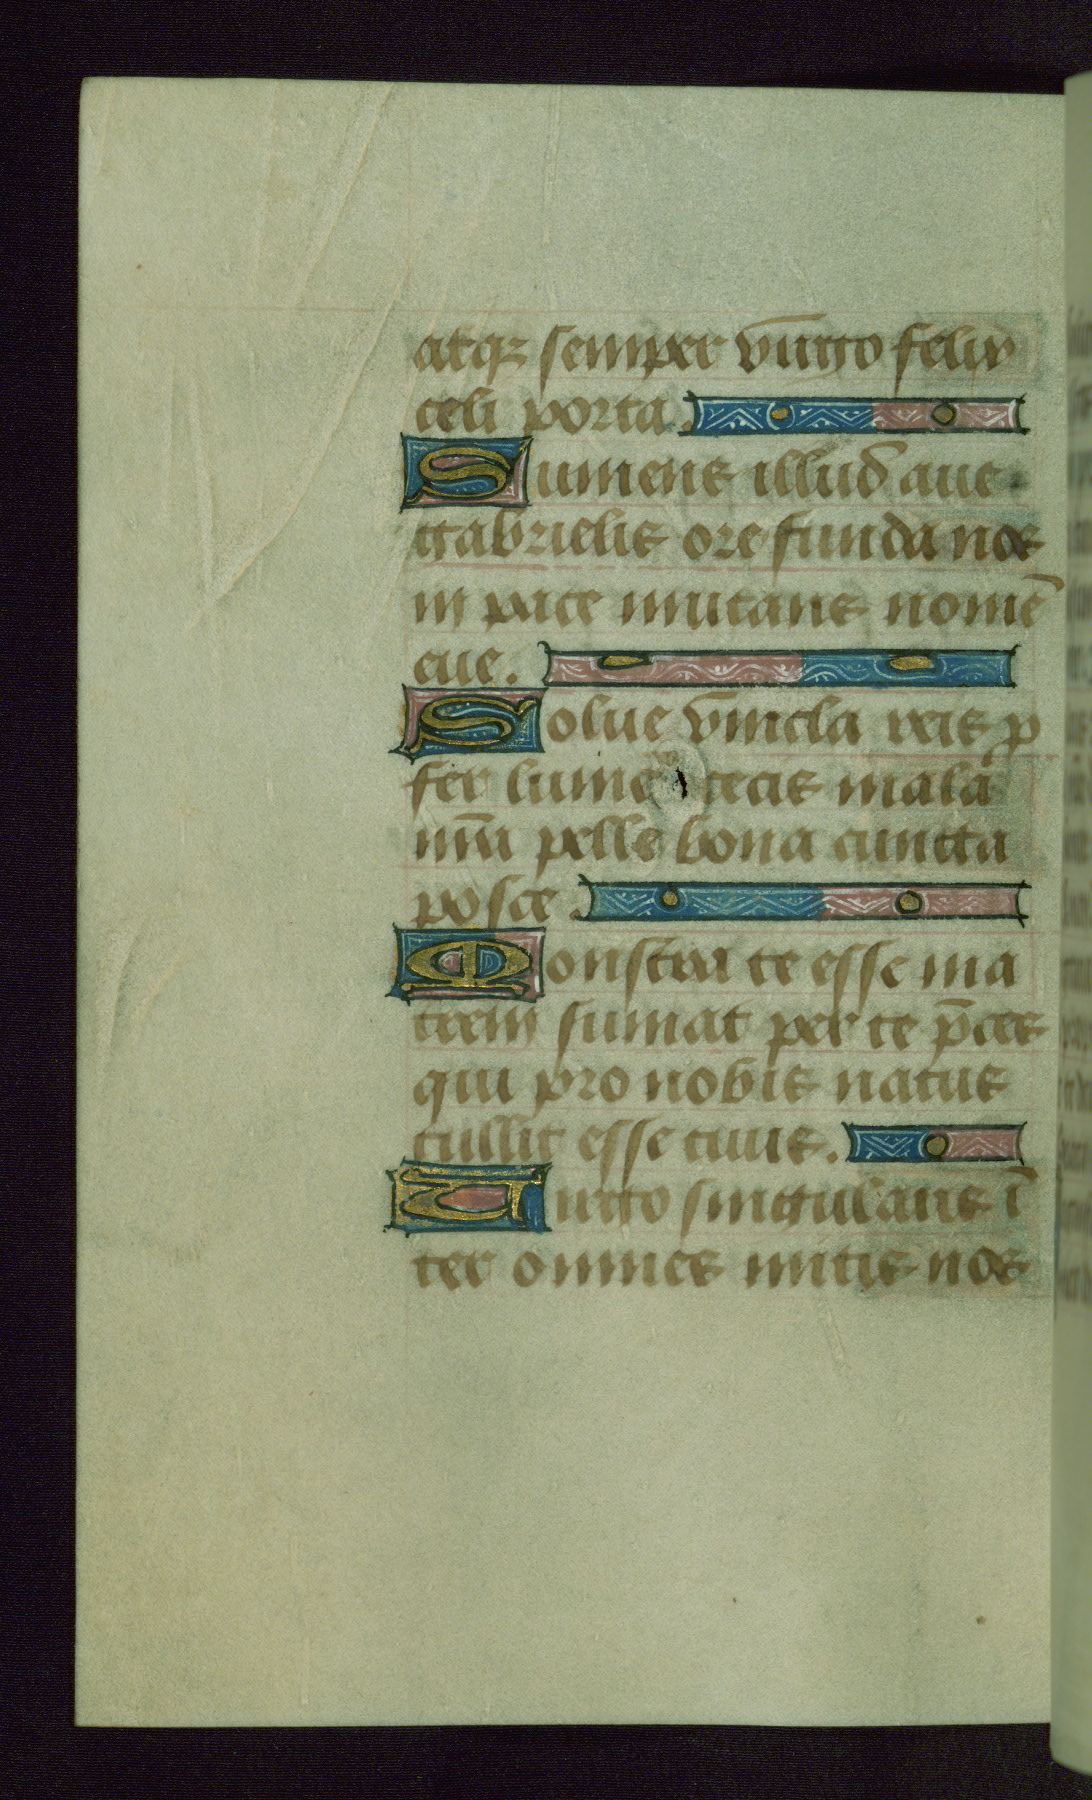 atqꝫ semper virgo felix
celi porta.
Sumens illud aue
gabrielis ore funda nos
in pace mutans nomē
eue.
Solue vincla reis ꝓ
fer lumē cecis mala
nr̄a pelle bona cuncta
posce.
Monstra te esse ma
trem sumat per te p̄ces
qui pro nobis natus
tullit esse tuus.
Uirgo singularis ī
ter omnes mitis nos